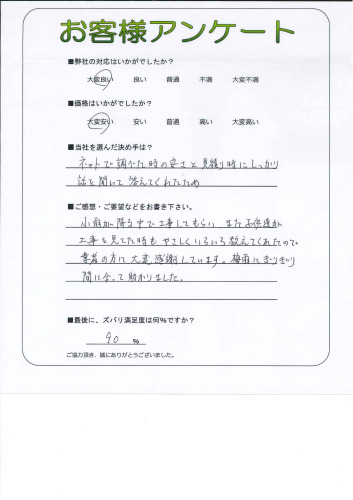 お客様アンケート
■弊社の対応はいかがでしたか？
大変良い 良い 普通 不満 大変不満
■価格はいかがでしたか？
大変安い 安い 普通 高い 大変高い
■当社を選んだ決め手は？
ネットで調べた時の安さと見積り時にしっかり
話を聞いて答えてくれたため
■ご感想・ご要望などをお書き下さい。
小雨が降る中で工事してもらい、また子供達が
工事を見てた時もやさしくいろいろ教えてくれたので
業者の方に大変感謝しています。梅雨にぎりぎり
間に合って助かりました。
■最後に、ズバリ満足度は何%ですか？
90 %
ご協力頂き、誠にありがとうございました。